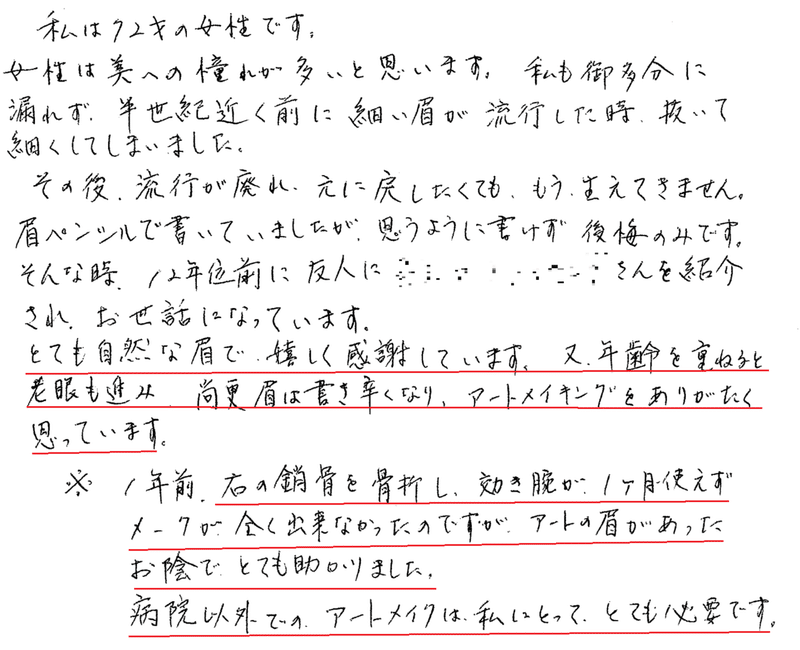 私は72才の女性です。
女性は美への憧れが多いと思います。私も御多分に
漏れず、半世紀近く前に細い眉が流行した時、抜いて
細くしてしまいました。
その後、流行が廃れ、元に戻したくても、もう生えてきません。
眉ペンシルで書いていましたが、思うように書けず後悔のみです。
そんな時、12年位前に友人に さんを紹介
され、お世話になっています。
とても自然な眉で、嬉しく感謝しています。又、年齢を重ねると
老眼も進み、尚更眉は書き辛くなり、アートメイキングをありがたく
思っています。
※ 1年前、右の鎖骨を骨折し、効き腕が、1ヶ月使えず
メークが、全く出来なかったのですが、アートの眉があった
お陰で、とても助かりました。
病院以外での、アートメイクは、私にとって、とても必要です。